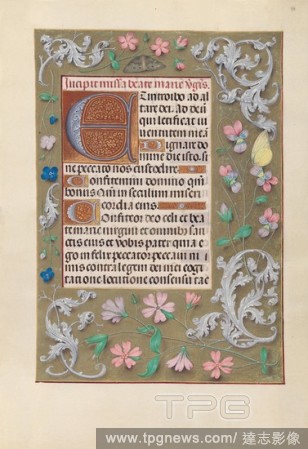 Incipit missa beate marie v̄gīs.
Et introibo ad al
tare dei. Ad deū
qui letificat iu
uentutem meā
Dignare do
mine die isto si
ne peccato nos custodire
Confitemini domino qm̄
bonus Qm̄ in seculum miseri
cordia eius
Confiteor deo celi et bea
te marie virgini et omnibus san
ctis eius et vobis pater quia e
go infelix peccator peccaui ni
mis contra legem dei mei cogi
tatione locutione consensu tac
TPG
www.tpgnews.com/ 達志影像